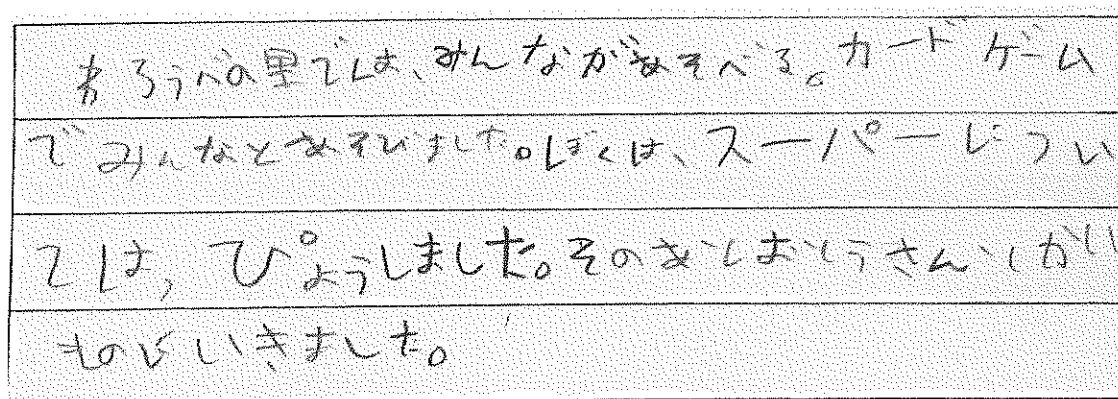 わろうべの里では、みんながあそべる。カードゲーム
でみんなとあそびました。ぼくは、スーパーについ
ては、ぴょうしました。そのあとおとうさんとかい
ものにいきました。